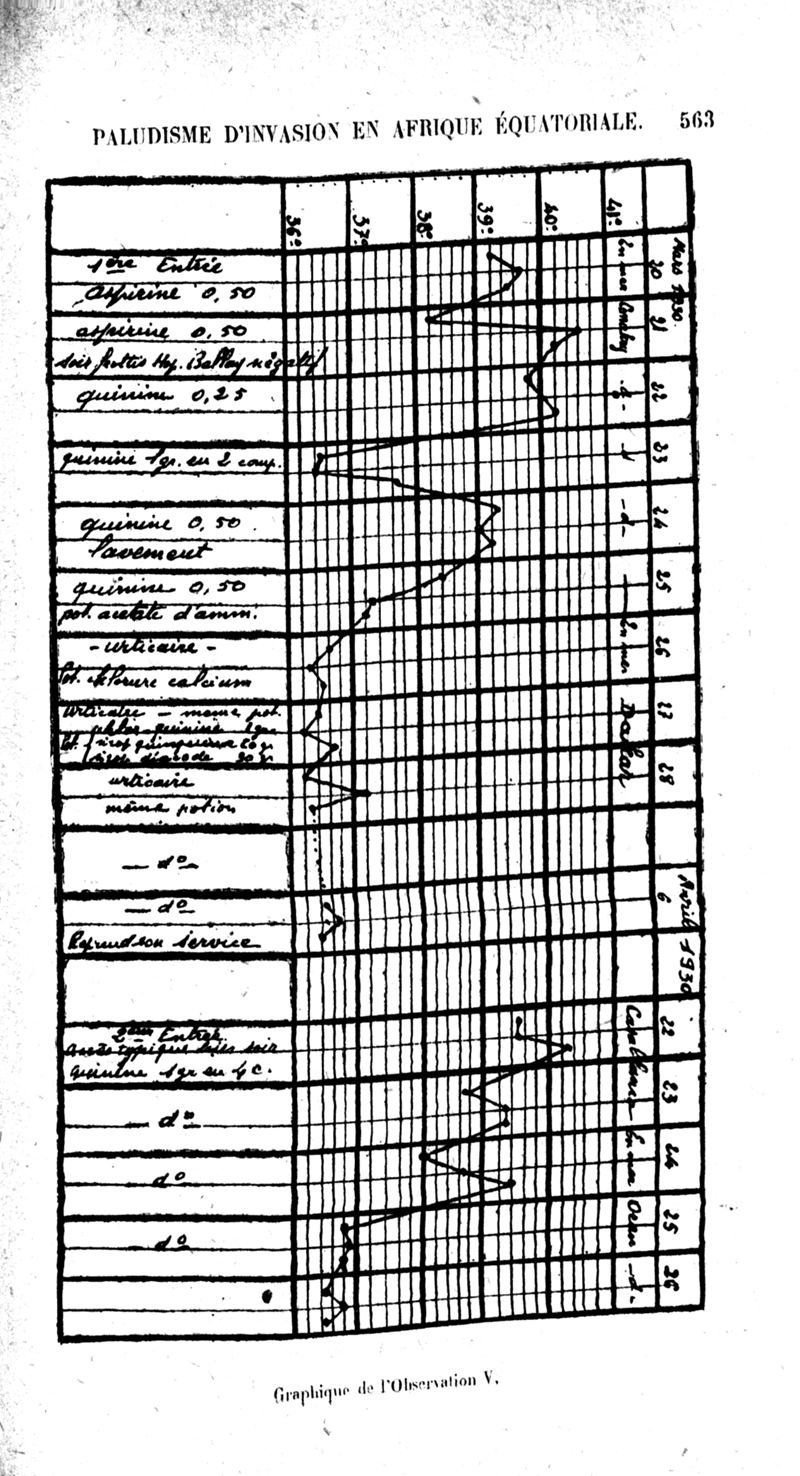 PALUDISME D'INVASION EN AFRIQUE ÉQUATORIALE. 563
36° 37° 38° 39° 40° 41°
Mars 1930
1ère Entrée
Aspirine 0,50
20
En mer
aspirine 0,50
soir frottis Hop. Ballay négatif
21
Conakry
quinine 0,25
22
- d° -
quinine 1gr. en 2 comp.
23
quinine 0,50.
lavement
24
- d° -
quinine 0,50
pot. acétate d'amm.
25
- urticaire -
Pot. chlorure calcium
26
En mer
Urticaire - même pot.
chlor. quinine 1gr.
27
Dakar
urticaire
même potion
28
- d° -
Avril 1930
- d° -
Reprend son service
6
2ème Entrée
quinine 1gr en 4 c.
22
Casablanca
- d° -
23
d°
24
En mer
- d° -
25
Oran
26
- d° -
Graphique de l'Observation V.